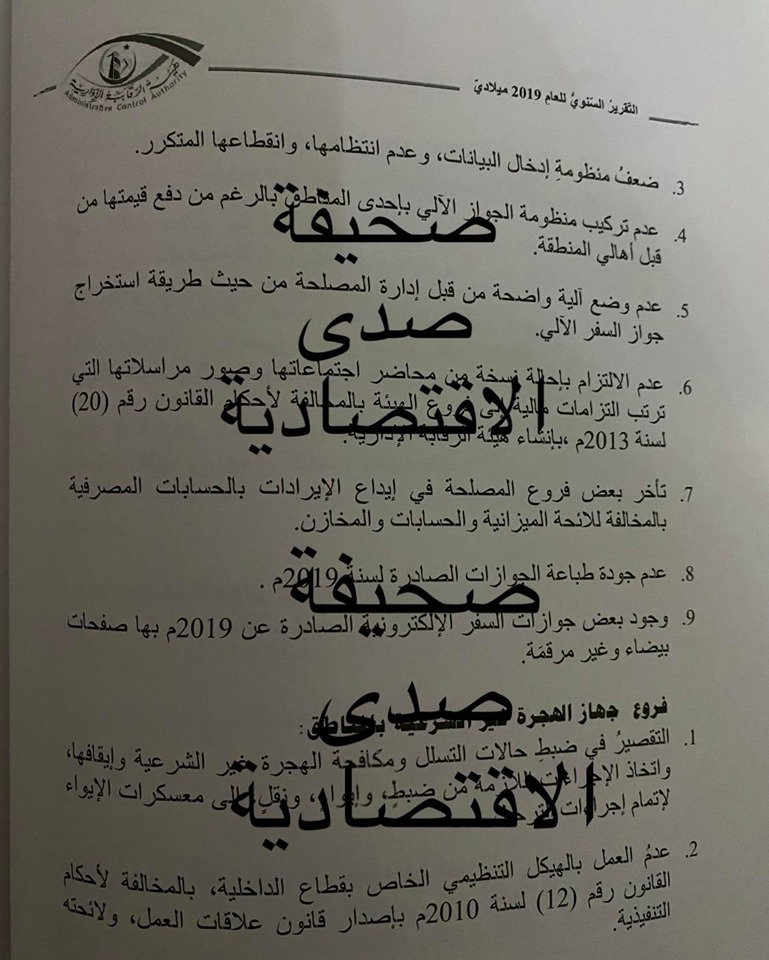 هيئة الرقابة الإدارية
Administrative Control Authority
التقريرُ السَنويُّ للعامِ 2019 ميلاديّ
3. ضعفُ منظومةِ إدخال البيانات، وعدم انتظامها، وانقطاعها المتكرر.
4. عدم تركيب منظومة الجواز الآلي بإحدى المناطق بالرغم من دفع قيمتها من
قبل أهالي المنطقة.
5. عدم وضع آلية واضحة من قبل إدارة المصلحة من حيث طريقة استخراج
جواز السفر الآلي.
6. عدم الالتزام بإحالة نسخة من محاضر اجتماعاتها وصور مراسلاتها التي
ترتب التزامات مالية إلى فروع الهيئة بالمخالفة لأحكام القانون رقم (20)
لسنة 2013م ،بإنشاء هيئة الرقابة الإدارية.
7. تأخر بعض فروع المصلحة في إيداع الإيرادات بالحسابات المصرفية
بالمخالفة للائحة الميزانية والحسابات والمخازن.
8. عدم جودة طباعة الجوازات الصادرة لسنة 2019م .
9. وجود بعض جوازات السفر الإلكترونية الصادرة عن 2019م بها صفحات
بيضاء وغير مرقمَة.
فروع جهاز الهجرة غير الشرعية بالمناطق:
1. التقصيرُ في ضبطِ حالات التسلل ومكافحة الهجرة غير الشرعية وإيقافها،
واتخاذ الإجراءات اللازمة من ضبطٍ، وإيواءٍ، ونقلٍ إلى معسكرات الإيواء
لإتمام إجراءات
2. عدمُ العمل بالهيكل التنظيمي الخاص بقطاع الداخلية، بالمخالفة لأحكام
القانون رقم (12) لسنة 2010م بإصدار قانون علاقات العمل، ولائحته
التنفيذية.
صحيفة
صدى
الاقتصادية
صحيفة
صدى
الاقتصادية